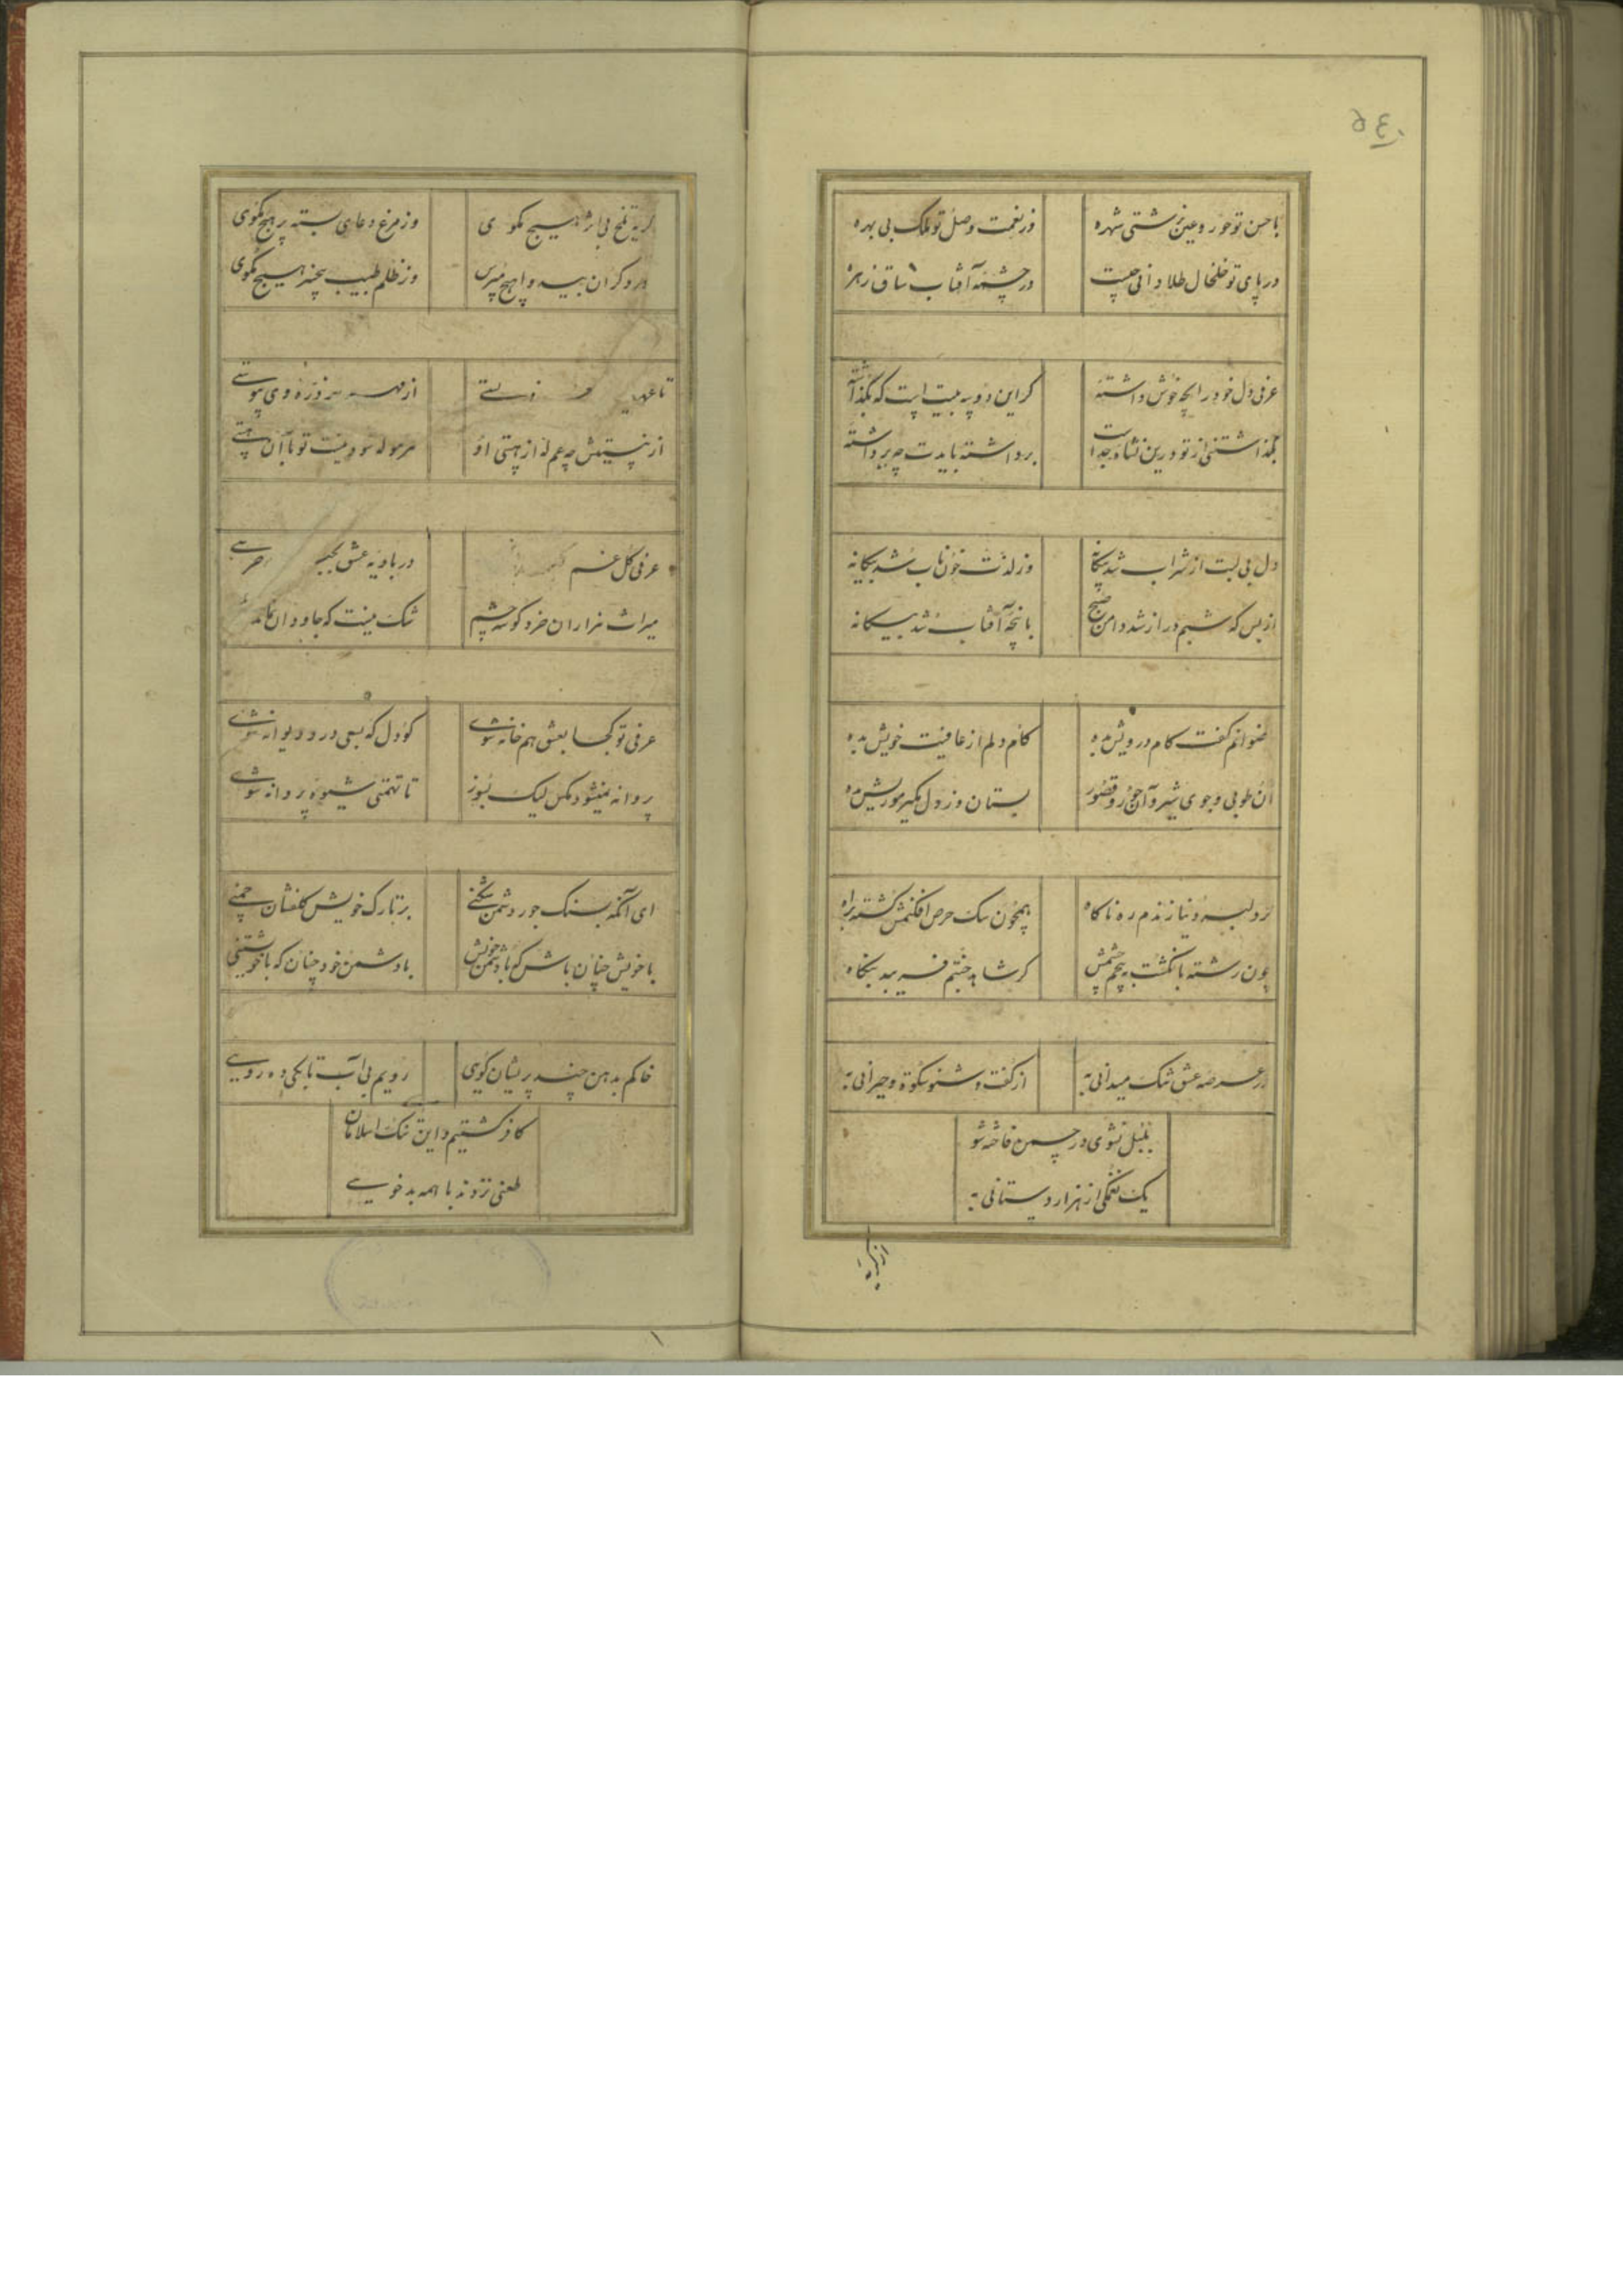 با حسن تو حور و عین بزشتی شهره
وز نعمت وصل تو ملک بی بهره
در پای تو خلخال طلا دانی چیست
در چشمهٔ آفتاب ساق زهره
عرفی دل خود را بچه خوش داشتهٔ
گر این دو سه بیت است که بگذاشتهٔ
بگذاشتنی از تو درین نشاه جداست
برداشته بایدت چه برداشتهٔ
دل بی لبت از شراب شد بیگانه
وز لذت خون ناب شد بیگانه
از بس که شبم دراز شد دامن صبح
با پنجهٔ آفتاب شد بیگانه
رضوانم گفت کام درویش بده
کام دلم از عافیت خویش بده
آن طوبی و جوی شیر و آن حور و قصور
بستان و ز دل
گر دلبر دنیا زندم ره ناگاه
همچون سگ حرص افکنمش کشته براه
چون رشته بانگشت بپیچم چشمش
گر شاهد جنتم فریبد بنگاه
در عرصه عشق تنگ میدانی به
از گفت و شنو سکوت و حیرانی به
بلبل نشوی در چمن فاخته شو
یک نغمگی از هزار دستانی به
گریه تلخ بی اثر هیچ مگوی
وز مرغ دعای بسته پر هیچ مگوی
درد گران بی دوا هیچ مپرس
وز ظلم طبیب بیخبر هیچ مگوی
تا عهد
از
از نیستیش چه غم نه از هستی او
سود نیست تو با آن هستی
عرفی گل غم
در بادیه عشق
میراث هزاران خرد گوشه چشم
شک نیست که جاودان بماند
عرفی تو کجا بعشق هم خانه شوی
کو دل که بسی درد و دیوانه شوی
پروانه نمیشود مگس لیک بسوز
تا تهمتی شیوه پروانه شوی
ای آنکه بسنگ جور دشمن شکنی
بر تارک خویش گلفشان چمنی
با خویش چنان باش که با دشمن خویش
با دشمن خود چنان که با خویشتنی
خاکم بدهن چند پریشان گویی
رویم بی آب تا بکی ده رویی
کافر گشتیم و این تنک اسلامان
طعنی نزدند با همه بد خویی